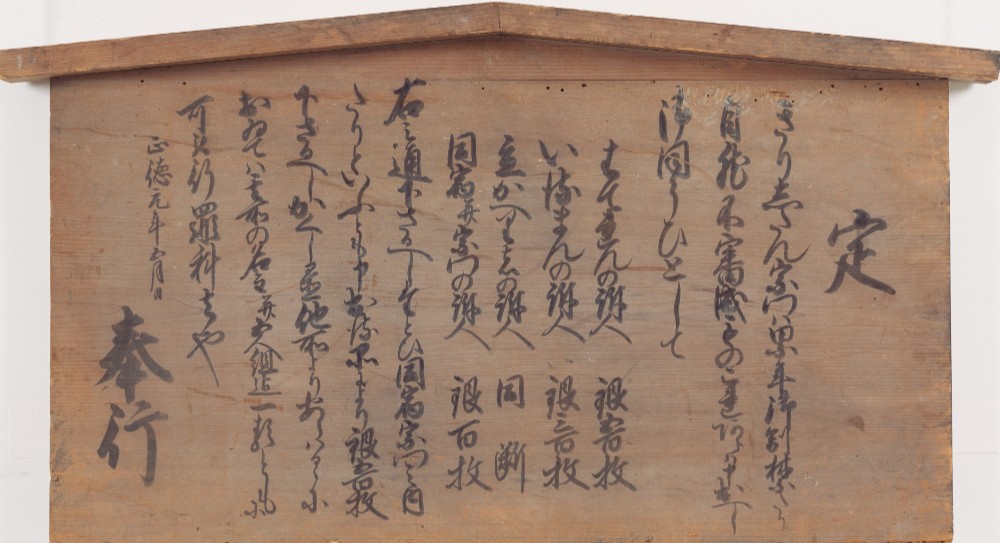 定
きりしたん宗門は累年御制禁たり
自然不審成ものこれあらは申出へし
御ほうひとして
はてれんの訴人 銀五百枚
いるまんの訴人 銀三百枚
立かへり者の訴人 同断
同宿并宗門の訴人 銀百枚
右之通下さるへしたとひ同宿宗門之内
たりといふとも申出る品により銀五百枚
下さるへしかくし置他所よりあらはるゝに
おゐてハ其所の名主并五人組迄一類とも
可被行罪科者也
正徳元年五月日
奉行